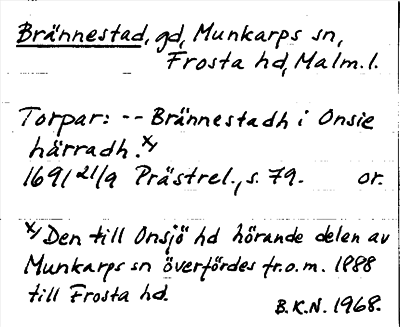 Brännestad, gd, Munkarps sn,
Frosta hd, Malm. l.
Torpar: -- Brännestadh i Onsie
härradh. x/
1691 21/9 Prästrel., s. 79. or.
x/ Den till Onsjö hd hörande delen av
Munkarps sn överfördes fr.o.m. 1888
till Frosta hd.
B.K.N. 1968.